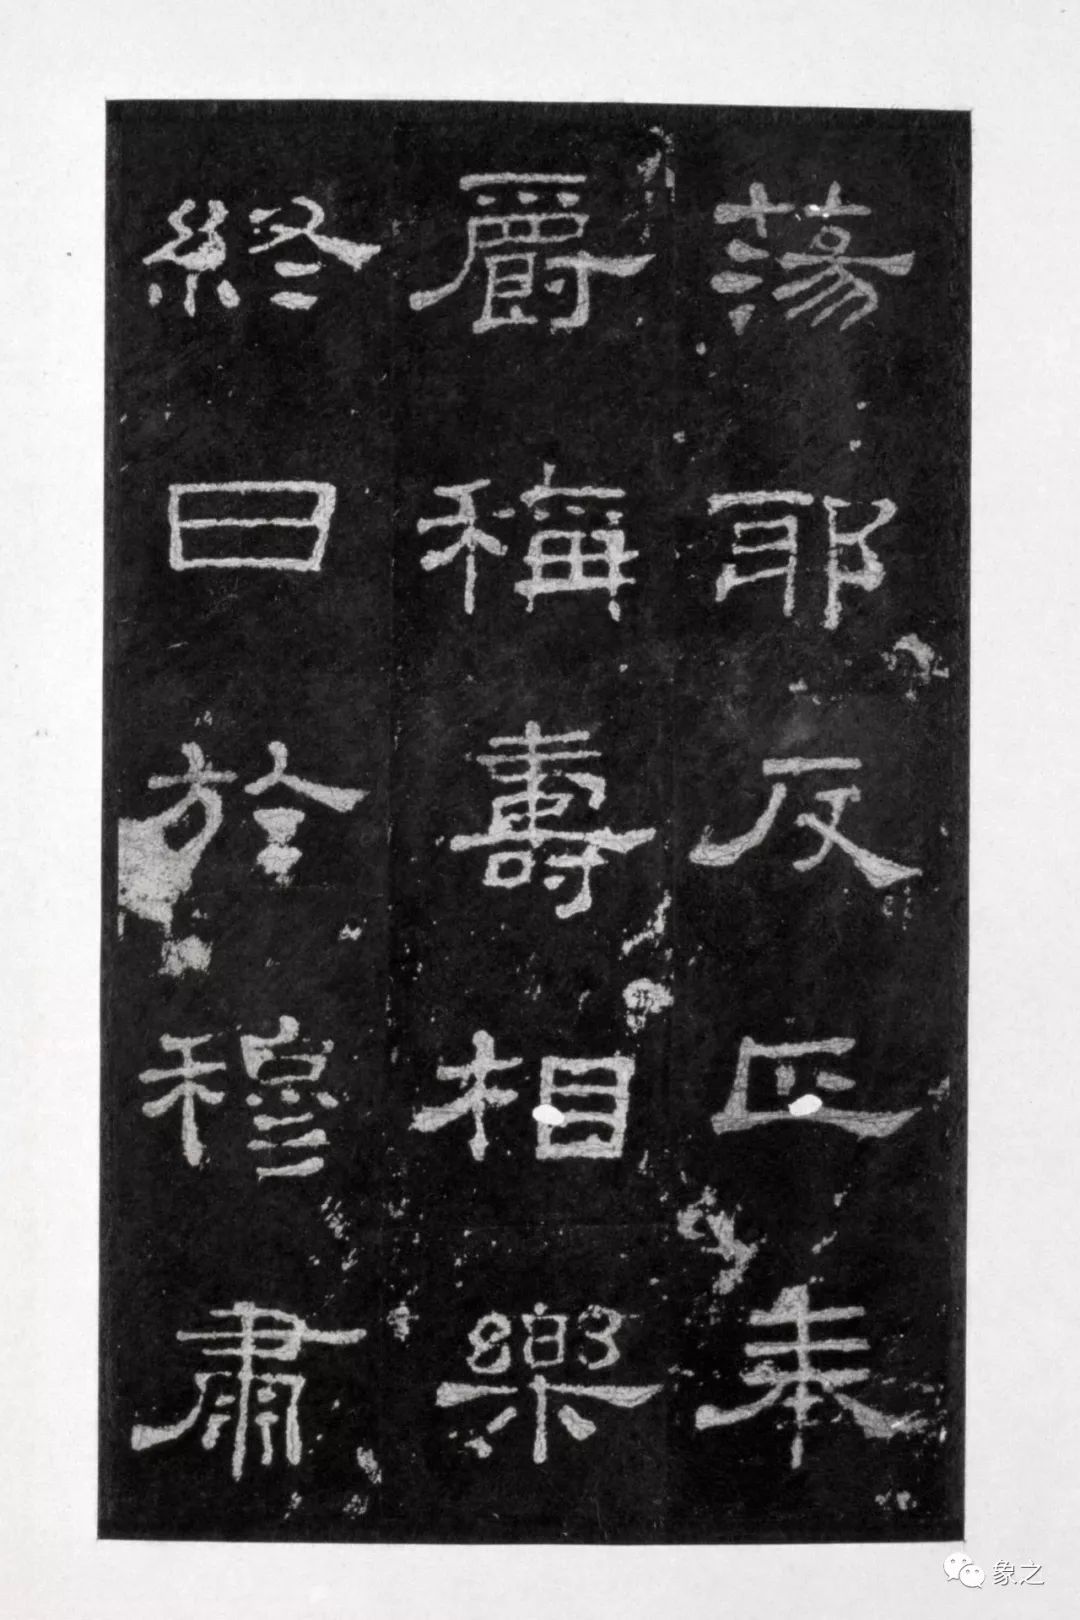 蕩耶反正奉
爵稱壽相樂
終日於穆肅
象之